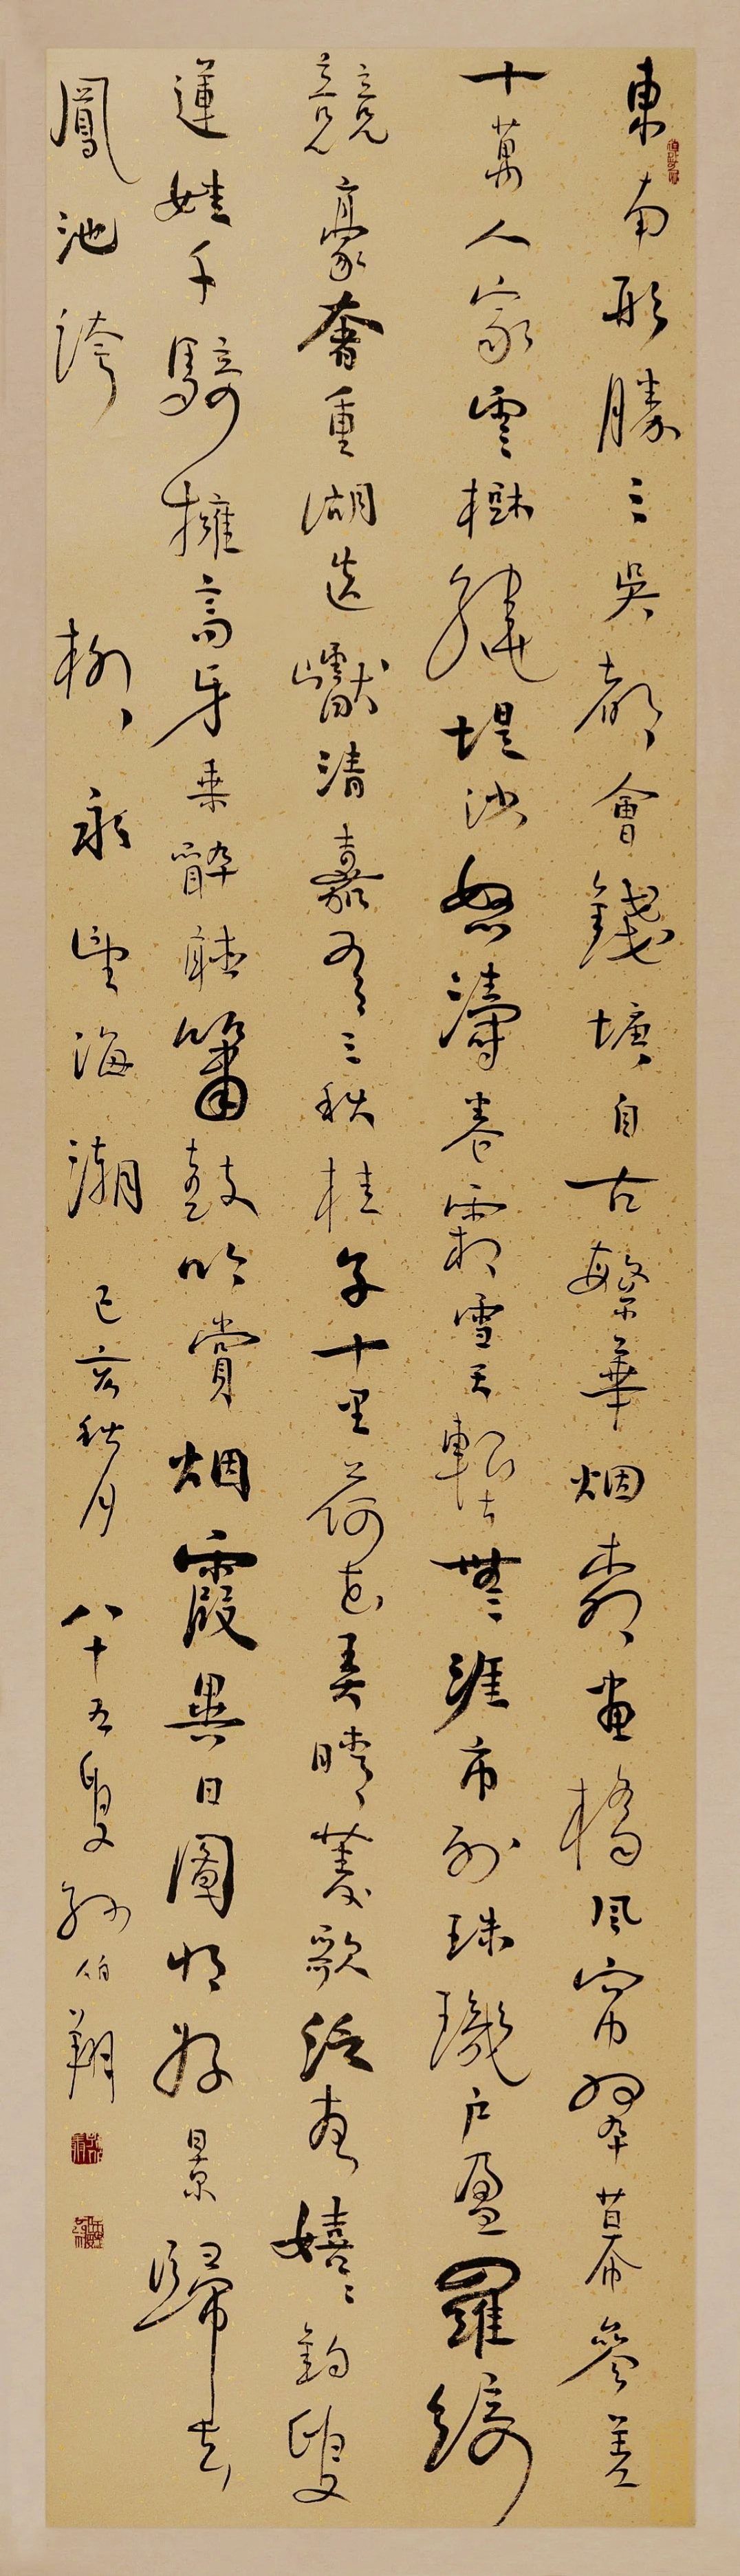 東南形勝三吳都會錢塘自古繁華烟柳畫橋風帘翠幕參差
十萬人家雲樹繞堤沙怒濤卷霜雪天塹無涯市列珠璣户盈羅綺
競豪奢重湖迭巘清嘉有三秋桂子十里荷花羌晴菱歌泛夜嬉嬉釣叟
蓮娃千騎擁高牙乘醉聽簫鼓吟賞烟霞異日圖將好景歸去
鳳池誇 柳永望海潮 己亥秋月 八十五叟孫伯翔